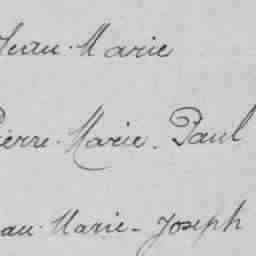 Jean-Marie
Pierre-Marie-Paul
Jean-Marie-Joseph